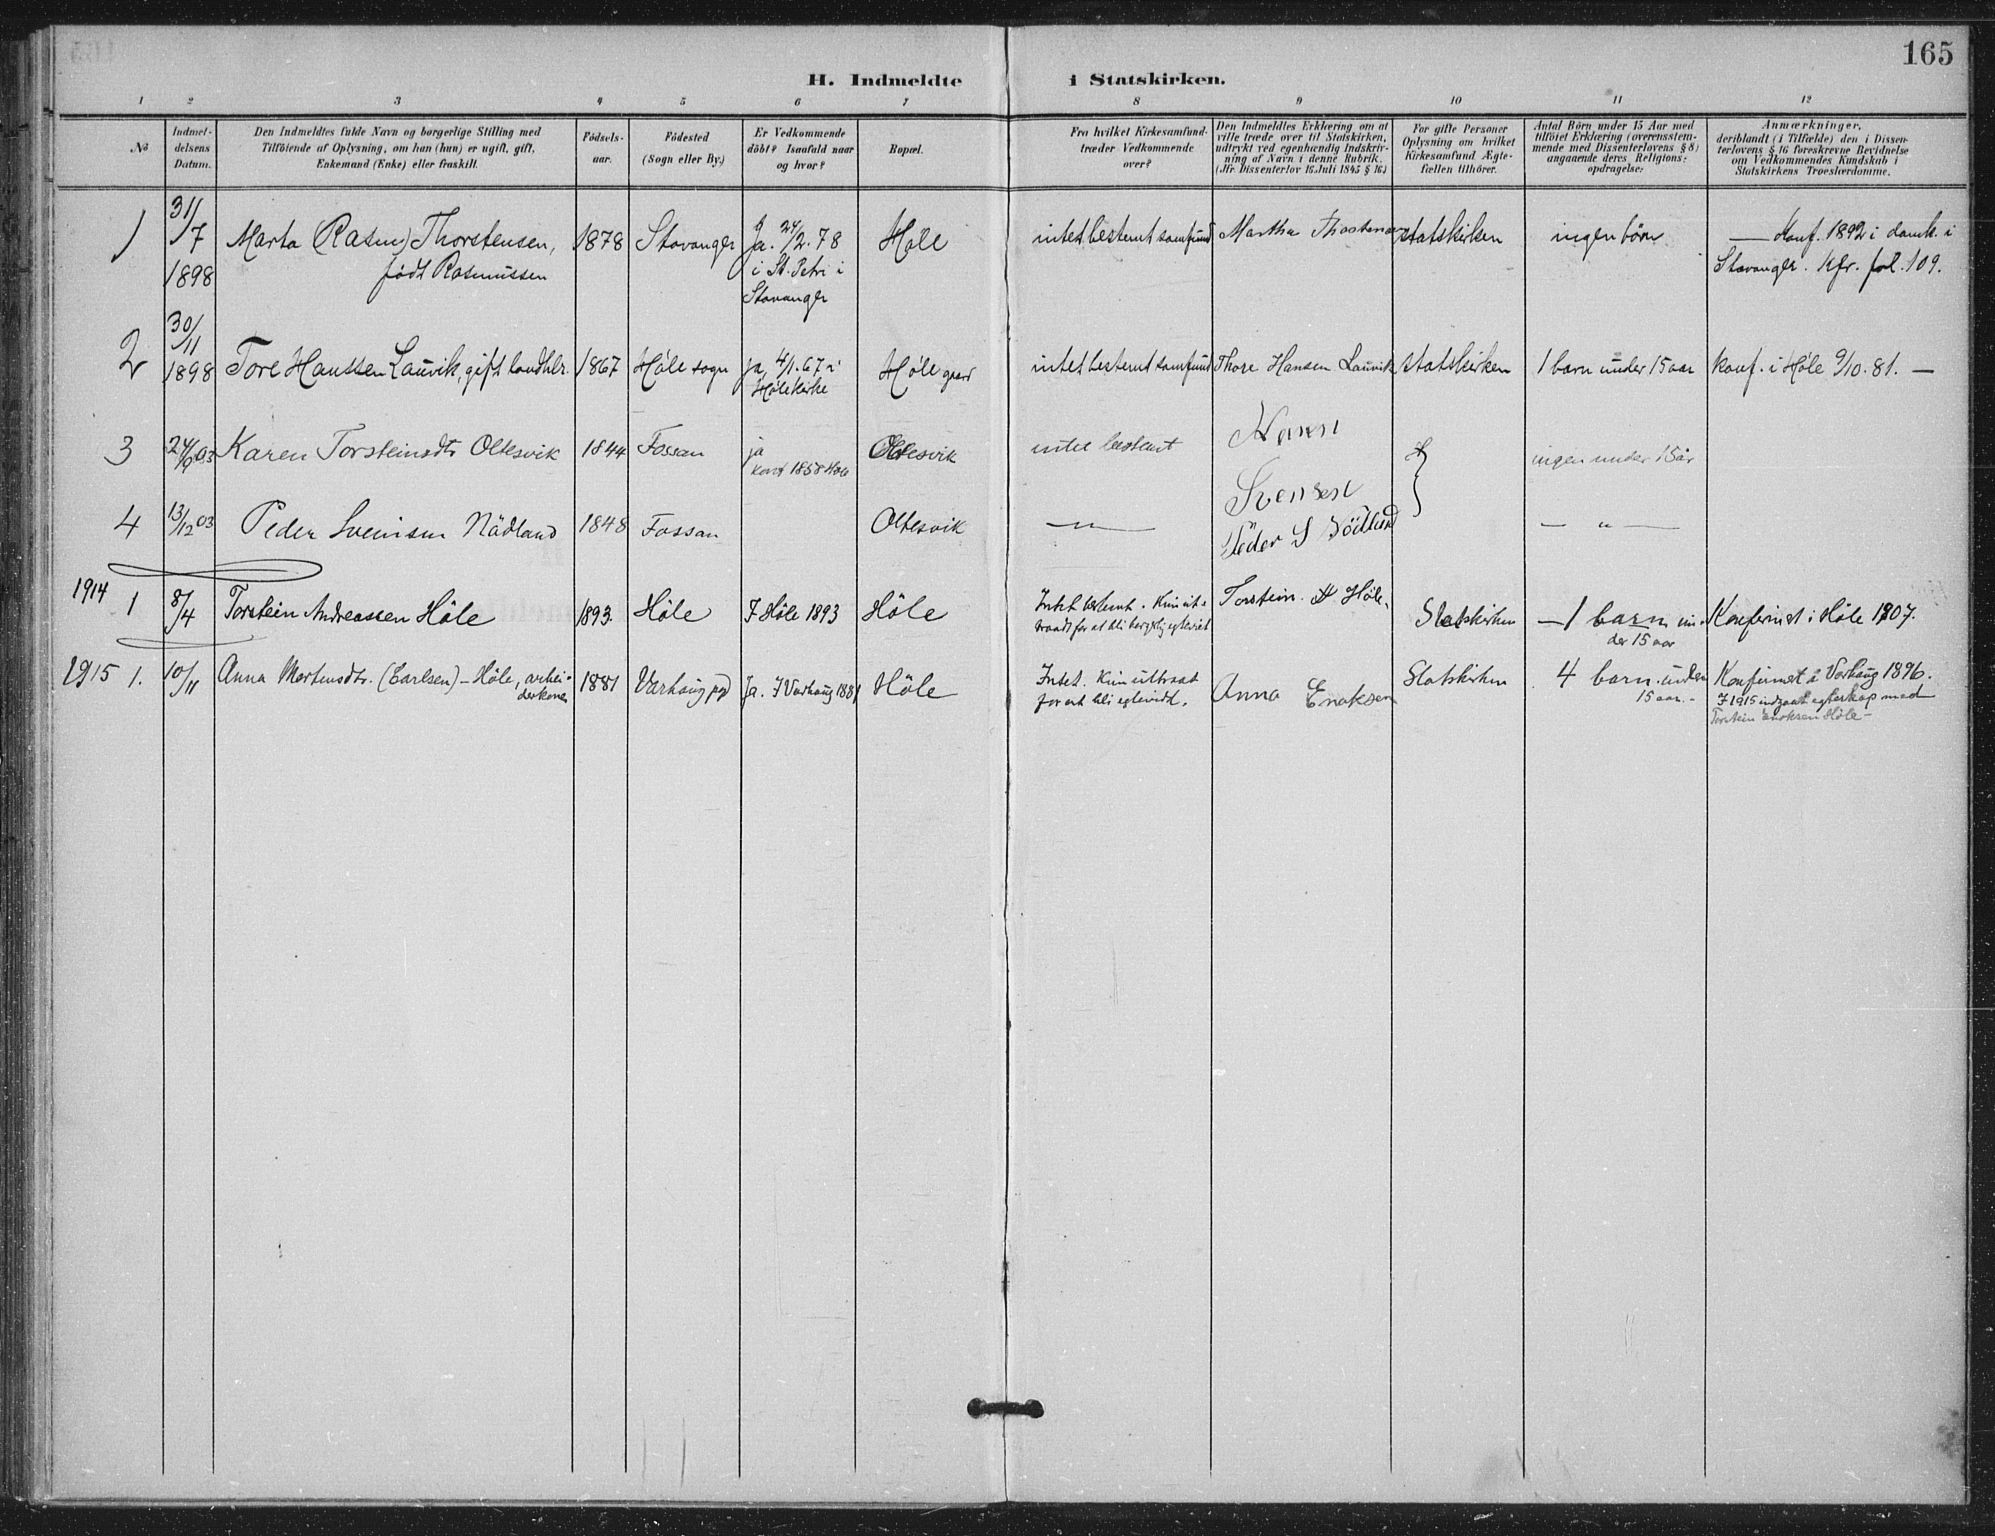 165
H. Indmeldte i Statskirken.
1 2 3 4 5 6 7 8 9 10 11 12
No
Indmel-
delsens
Datum.
Den Indmeldtes fulde Navn og borgerlige Stilling med
Tilföiende af Oplysning, om han (hun) er ugift, gift,
Enkemand (Enke) eller fraskilt.
Födsels-
aar.
Födested
(Sogn eller By.)
Er Vedkommende
döbt? Isaafald naar
og hvor?
Bopæl.
Fra hvilket Kirkesamfund
træder Vedkommende
over?
Den Indmeldtes Erklæring om at
ville træde over til Statskirken,
udtrykt ved egenhændig Indskriv-
ning af Navn i denne Rubrik.
(Jfr. Dissenterlov 16 Juli 1845 § 16.)
For gifte Personer
Oplysning om hvilket
Kirkesamfund Ægte-
fællen tilhörer.
Antal Börn under 15 Aar med
tilföiet Erklæring (overensstem-
mende med Dissenterlovens § 8)
angaaende deres Religions-
opdragelse:
Anmærkninger,
deriblandt (i Tilfælde) den i Dissen-
terlovens § 16 foreskrevne Bevidnelse
om Vedkommendes Kundskab i
Statskirkens Troeslærdomme.
1
31/7
1898
Marta (Rasm) Thorstensen,
födt Rasmussen
1878
Stavanger
Ja. 24/2. 78
i St. Petri i
Stavanger
Höle
intet bestemt samfund
Martha Thorstensen
statskirken
ingen börn
— Konf. 1892 i domk. i
Stavanger. Kfr. fol. 109.
2
30/11
1898
Tore Hanssen Lauvik, gift landhlr.
1867
Höle sogn
ja, 4/1. 67 i
Höle kirke
Höle gaard
intet bestemt samfund
Thore Hansen Lauvik
statskirken
1 barn under 15 aar
konf. i Höle 9/10. 81. —
3
24/9 03
Karen Torsteinsdtr Oltesvik
1844
Fossan
ja
konf 1858 Höle
Oltesvik
intet bestemt
Svensen
ingen under 15 år
4
13/12 03
Peder Sveinsen Nädland
1848
Fossan
Oltesvik
— " —
Peder S Nödland
— " —
1914
1
8/4
Torstein Andreassen Höle
1893.
Höle
I Höle 1893
Höle
Intet bestemt. Kun ut-
traadt for at bli borgerlig egteviet
Torstein. A Höle.
Statskirken
— 1 barn un-
der 15 aar
Konfirmert i Höle 1907.
1915
1.
10/11
Anna Mortensdtr. (Carlsen) - Höle, arbei-
derkone
1881
Varhaug pgd
Ja. I Varhaug 1881
Höle
Intet. Kun uttraadt
for at bli egteviedt.
Anna Enoksen
Statskirken
4 barn under
15 aar. -
Konfirmert i Varhaug 1896.
I 1915 indgaat egteskap med
Torstein Enoksen Höle -